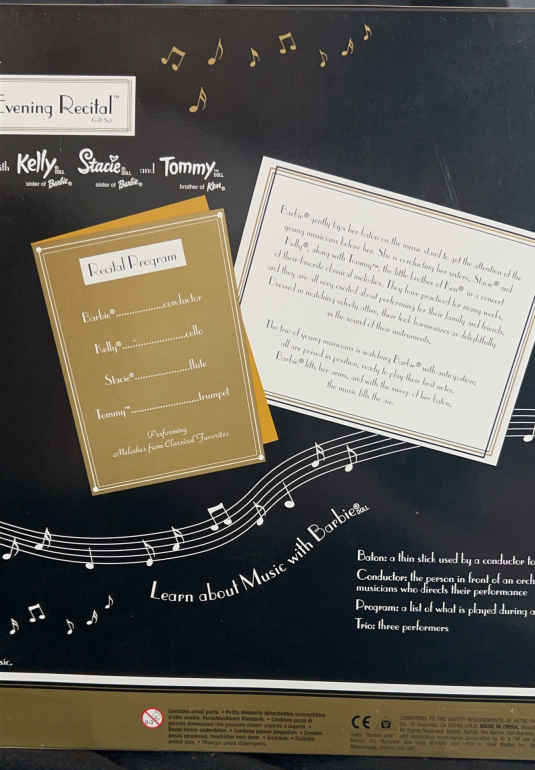 Evening Recital™
Gift Set
ith Kelly® DOLL Stacie® DOLL and Tommy™ DOLL
sister of Barbie® sister of Barbie® brother of Ken®
Recital Program
Barbie®..................conductor
Kelly®......................cello
Stacie®......................flute
Tommy™........................trumpet
Performing
Melodies from Classical Favorites
Barbie® gently taps her baton on the music stand to get the attention of the
young musicians before her. She is conducting her sisters, Stacie® and
Kelly®, along with Tommy™, the little brother of Ken®, in a concert
of their favorite classical melodies. They have practiced for many weeks,
and they are all very excited about performing for their family and friends.
Dressed in matching velvety attire, their look harmonizes as delightfully
as the sound of their instruments.
The trio of young musicians is watching Barbie® with anticipation;
all are poised in position, ready to play their best notes.
Barbie® lifts her arms, and with the sweep of her baton,
the music fills the air.
Learn about Music with Barbie® DOLL
Baton: a thin stick used by a conductor to
Conductor: the person in front of an orch
musicians who directs their performance
Program: a list of what is played during a
Trio: three performers
sic.
0-3
Contains small parts.
CE
CONFORMS TO THE SAFETY REQUIREMENTS OF ASTM
MADE IN CHINA